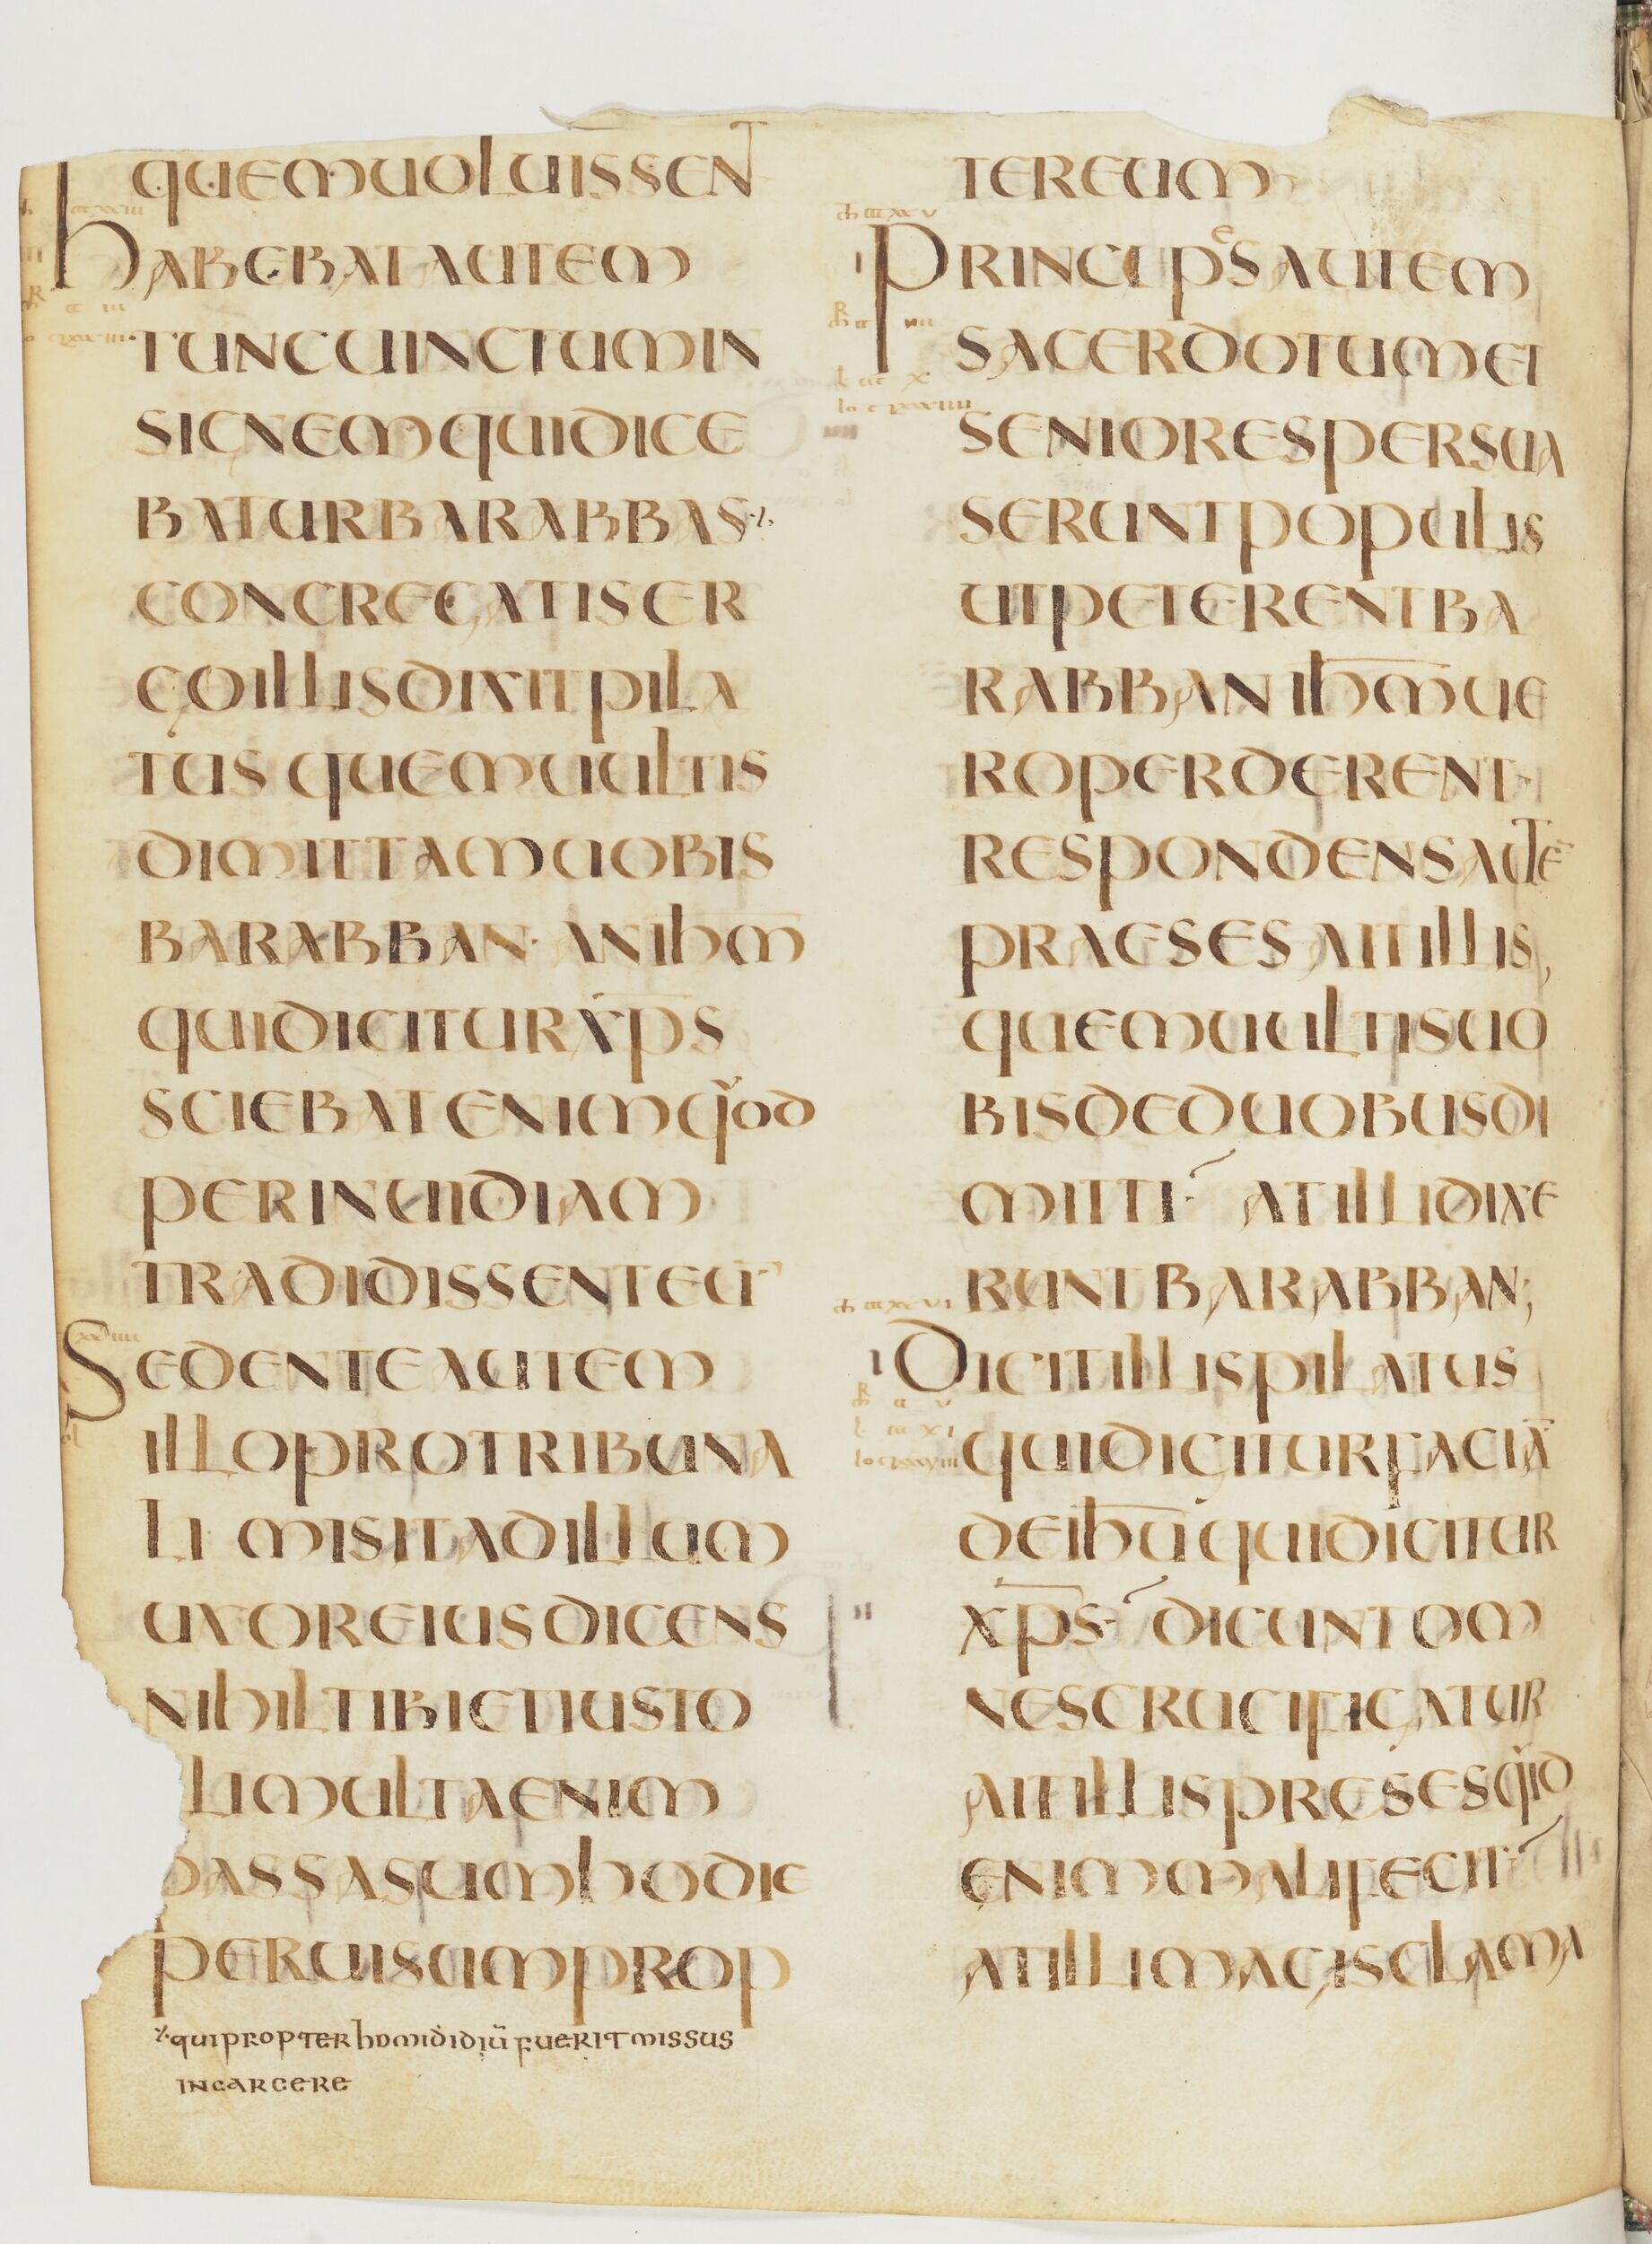 quemuoluissent
habebatautem
tuncuinctumin
signemquidice
baturbarabbas
congregatiser
goillisdixitpila
tus quemuultis
dimittamuobis
barabban· anihm̅
quidiciturxp̅s
sciebatenimqͧod
perinuidiam
tradidissenteū
Sedenteautem
illoprotribuna
li misitadillum
uxoreiusdicens
nihiltibietiusto
limultaenim
passasumhodie
peruisumprop
quipropterhomididiū fueritmissus
incarcere
tereum
principeͤsautem
sacerdotumet
seniorespersua
seruntpopulis
utpeterentba
rabbanihm̅ue
roperderent·
respondensautē
praeses aitillis,
quemuultisuo
bisdeduobusdi
mitti· atillidixe
runtbarabban;
dicitillispilatus
quidiciturfaciā
deihu̅quidicitur
xp̅s· dicuntom
nescrucifigatur
aitillispresesqͥd
enimmalifecit·
atillimagisclama